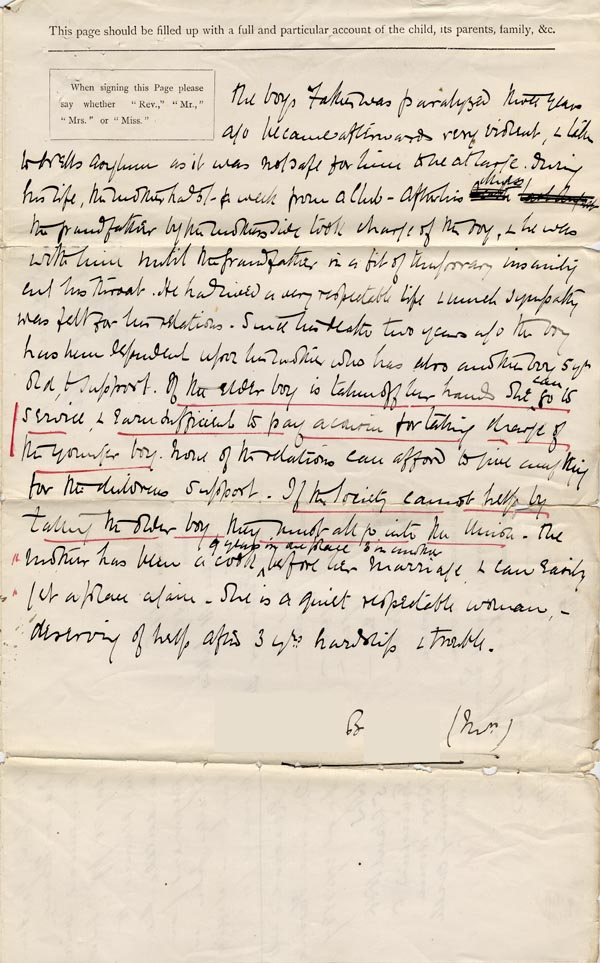 This page should be filled up with a full and particular account of the child, its parents, family, &c.
When signing this Page please
say whether "Rev.," "Mr.,"
"Mrs." or "Miss."
The boys Father was paralyzed three years
ago became afterwards very violent, & taken
to Asylum as it was not safe for him to be at large. During
his life, the mother had 5/- a week from a Club - After his
the grandfather by the mothers side took charge of the boy, & he was
with him until the grandfather in a fit of temporary insanity
cut his throat. He had lived a very respectable life & much sympathy
was felt for his relations. Since his death two years ago the boy
has been dependent upon his mother who has also another boy 5 yrs
old, to support. If the elder boy is taken off her hands she can go to
Service, & earn sufficient to pay a cousin for taking charge of
the younger boy. None of the relations can afford to give anything
for the childrens support. If the Society cannot help by
taking the older boy they must all go into the Union. The
9 years in one place 3 in another
mother has been a cook, before her marriage & can easily
get a place again - She is a quiet respectable woman, -
deserving of help after 3 yrs hardship & trouble.
B (Mrs)